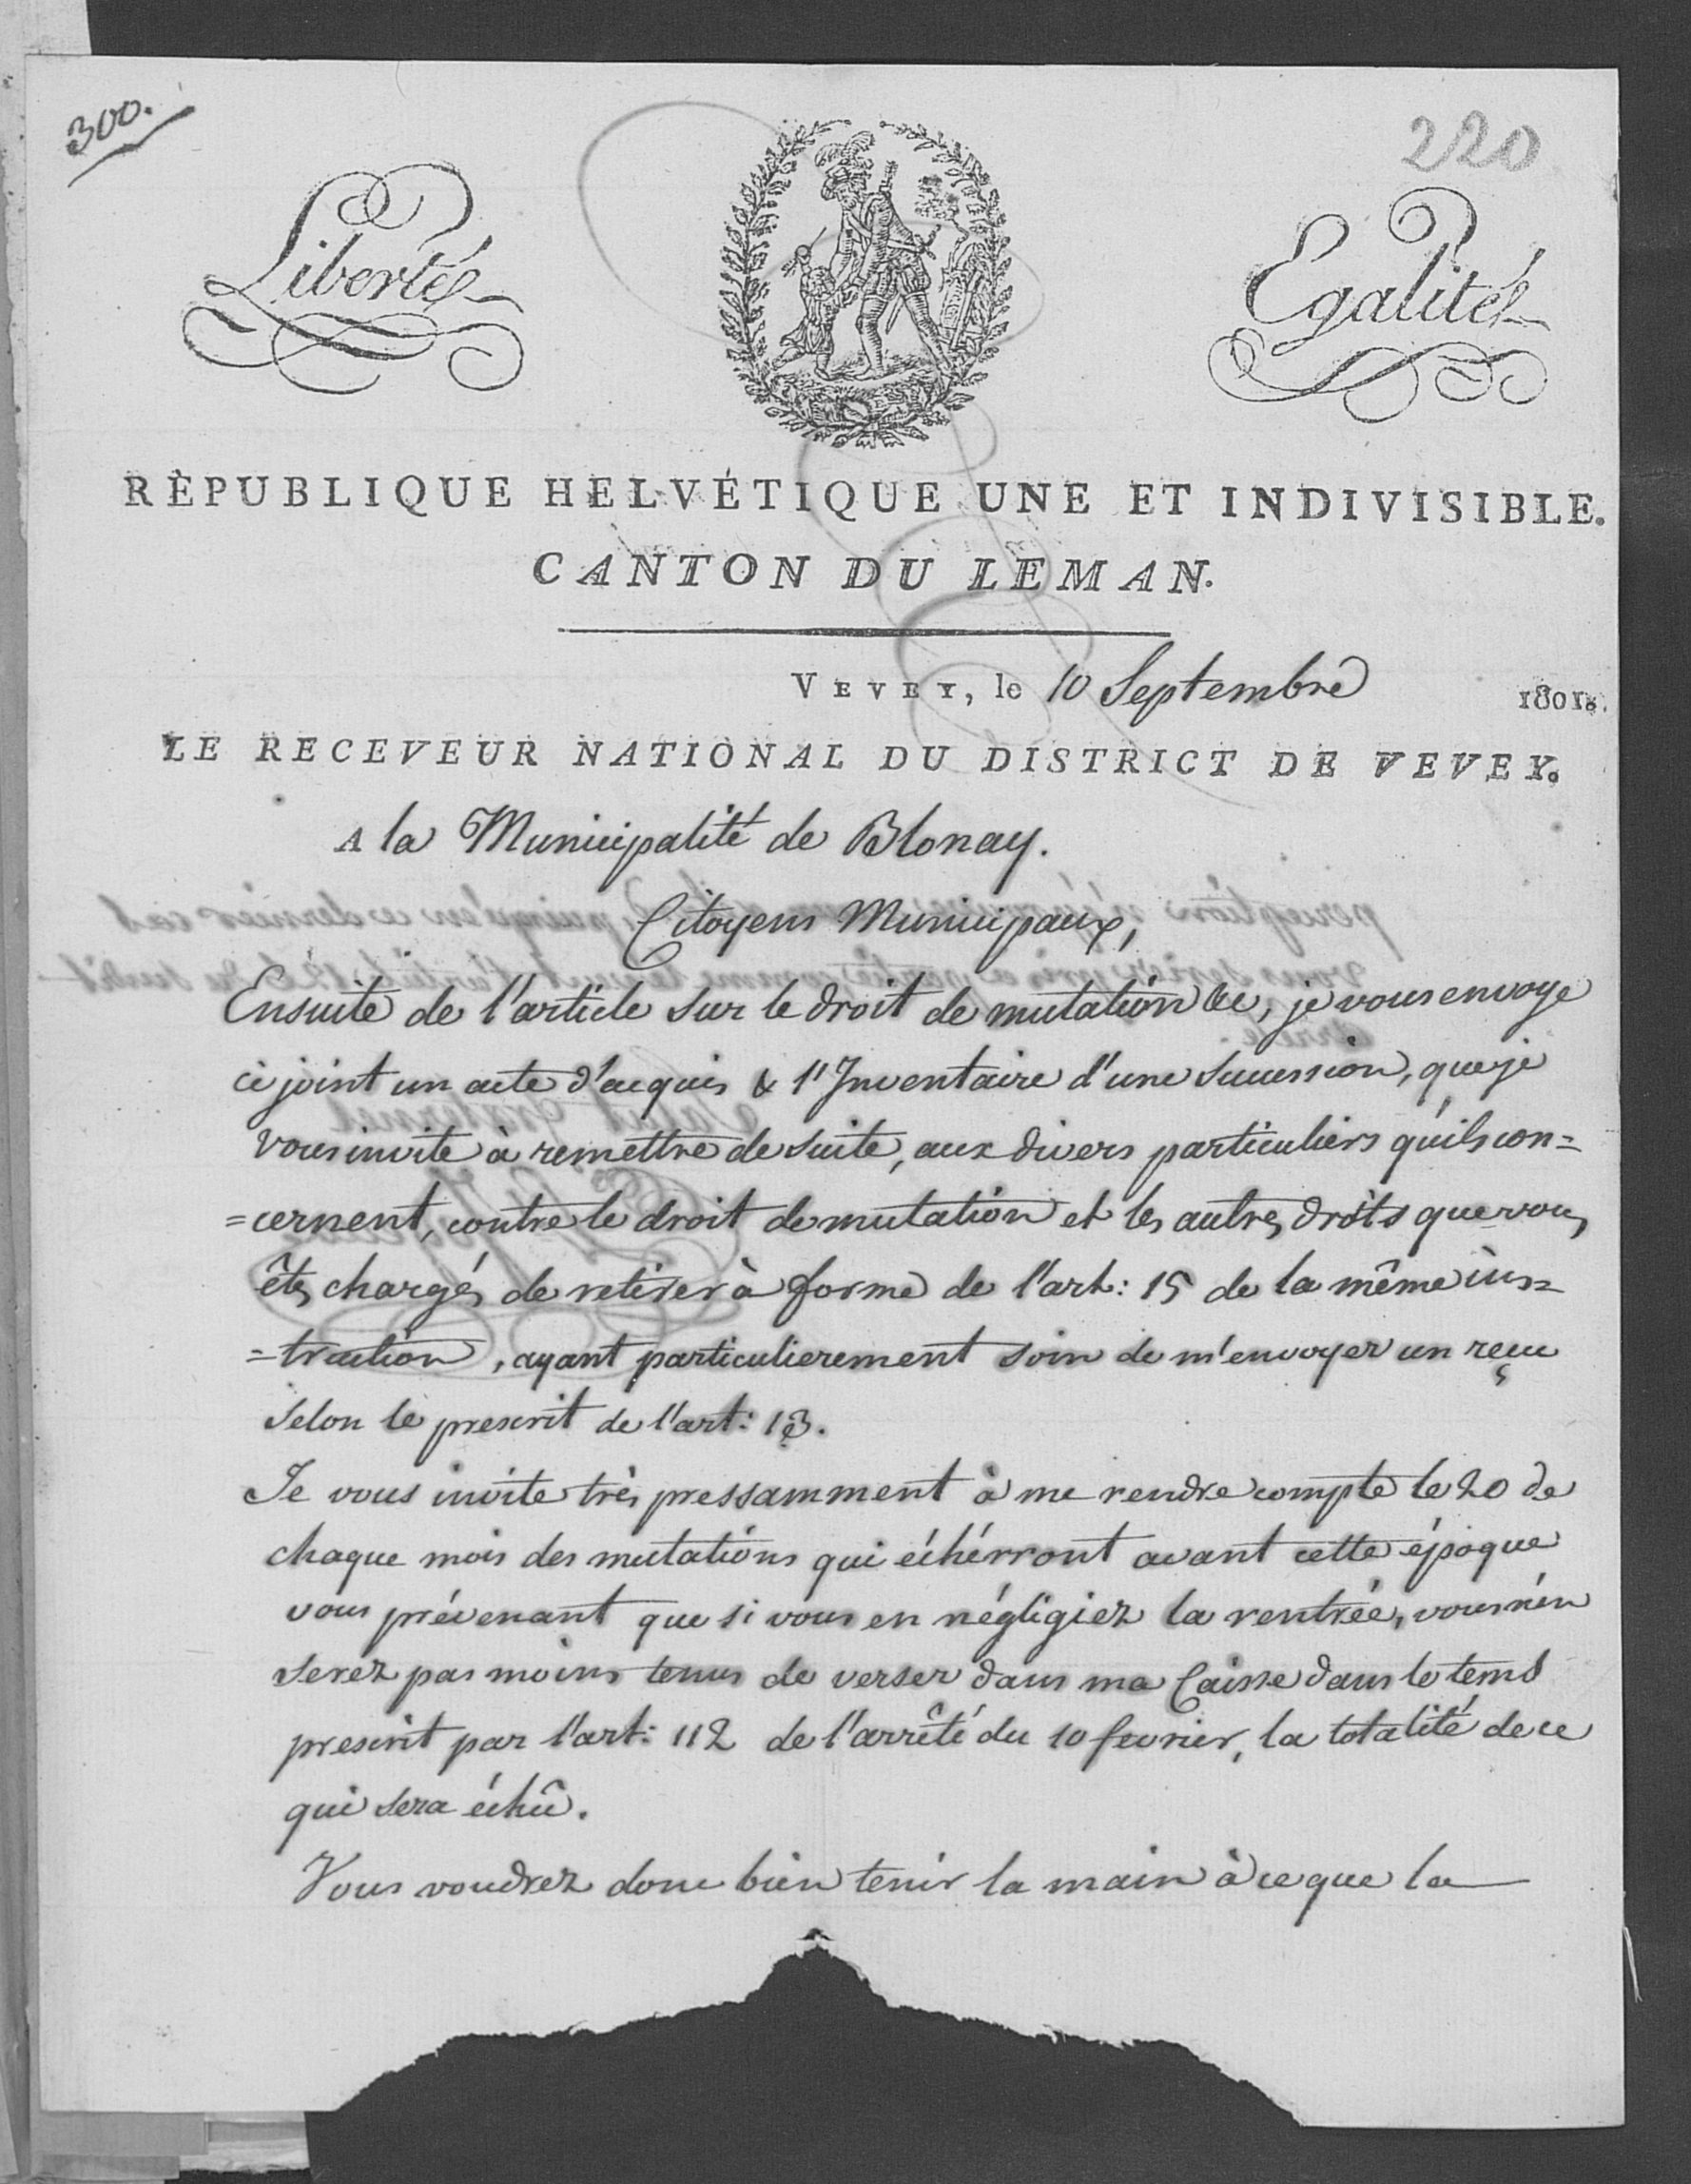 300.
220
Liberté
Egalité
RÉPUBLIQUE HELVÉTIQUE UNE ET INDIVISIBLE.
CANTON DU LEMAN.
VEVEY, le 10 Septembre 1801.
LE RECEVEUR NATIONAL DU DISTRICT DE VEVEY.
A la Municipalité de Blonay.
Citoyens Municipaux,
Ensuite de l'article sur le droit de mutation &c, je vous envoye
ci joint un acte d'acquis & l'Inventaire d'une Succession, que je
vous invite à remettre de suite, aux divers particuliers qu'ils con=
=cernent, contre le droit de mutation et les autres droits que vous
êtes chargés de retirer à forme de l'art: 15 de la même ins=
=truction, ayant particulierement soin de m'envoyer un reçu
selon le prescrit de l'art: 13.
Je vous invite très pressamment à me rendre compte le 20 de
chaque mois des mutations qui échérront avant cette époque
vous prévenant que si vous en négligiez la rentrée, vous n'en
serez pas moins tenus de verser dans ma Caisse dans le tems
prescrit par l'art: 112 de l'arrêté du 10 fevrier, la totalité de ce
qui sera échû.
Vous voudrez donc bien tenir la main à ce que la